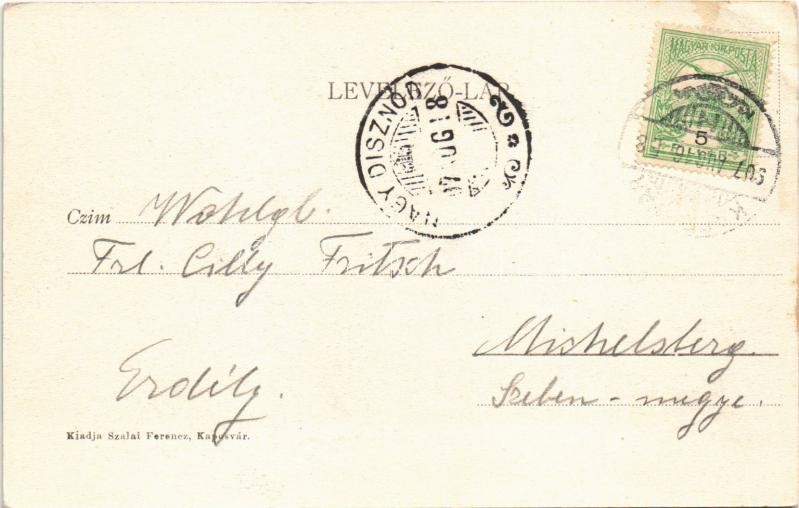 MAGYAR KIR. POSTA
LEVELEZŐ-LAP
NAGY DISZNÓD
5
Czim Wohlgb.
Frl. Cilly Fritsch
Michelsberg.
Erdély.
Szeben - megye.
Kiadja Szalai Ferencz, Kaposvár.